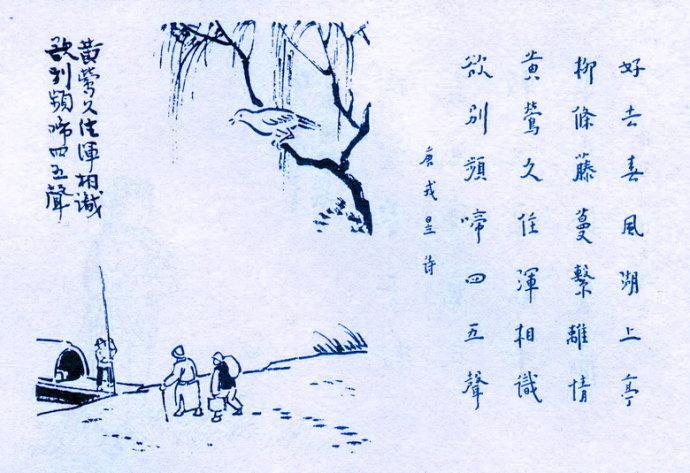 好去喜風湖上亭
柳條藤蔓繫離情
黃鶯久住渾相識
欲別頻啼四五聲
唐戎昱诗
黃鶯久住渾相識
欲別頻啼四五聲